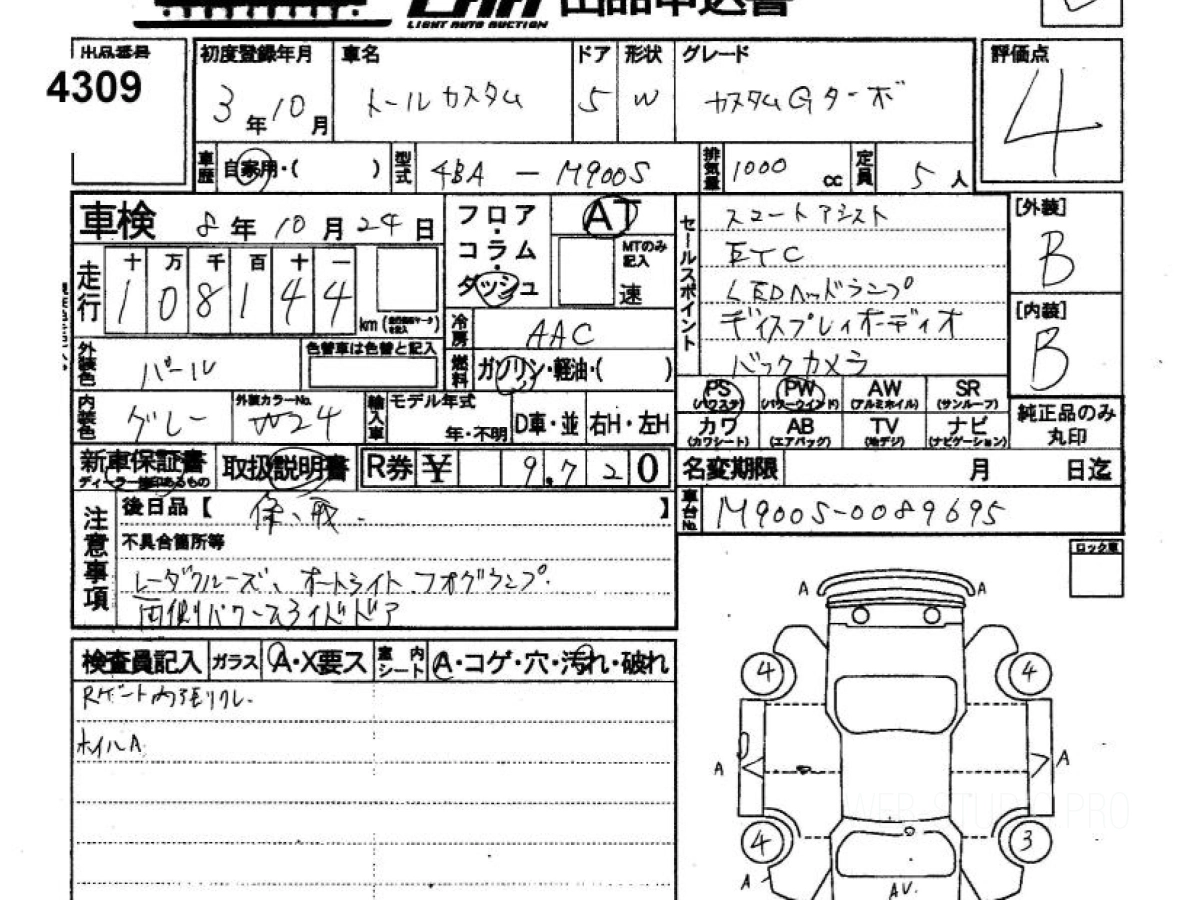 出品申込書
LIGHT AUTO AUCTION
出品番号
4309
初度登録年月 3年10月
車名 トールカスタム
ドア 5
形状 W
グレード カスタムGターボ
評価点 4
車歴 自家用・( )
型式 4BA - M900S
排気量 1000 cc
定員 5人
車検 8年10月24日
フロア・コラム・ダッシュ
AT
MTのみ記入
速
セールスポイント
スマートアシスト
ETC
LEDヘッドランプ
ディスプレイオーディオ
バックカメラ
[外装] B
[内装] B
走行 十万千百十一
108144 km
冷房 AAC
外装色 パール
色替車は色替と記入
燃料 ガソリン・軽油・( )
PS (パワステ)
PW (パワーウインド)
AW (アルミホイル)
SR (サンルーフ)
カワ (カワシート)
AB (エアバッグ)
TV (地デジ)
ナビ (ナビゲーション)
純正品のみ丸印
内装色 グレー
外装カラーNo. W24
輸入車
モデル年式 年・不明
D車・並
右H・左H
新車保証書
ディーラー捺印あるもの
取扱説明書
R券 ¥ 9,720
名変期限 月 日迄
注意事項
後日品【保、取. 】
不具合箇所等
レーダクルーズ、オートライト、フォグランプ.
両側パワースライドドア
車台No. M900S-0089695
ロック車
検査員記入
ガラス A・X要ス
室内シート A・コゲ・穴・汚れ・破れ
Rゲート内張リクレ.
ホイルA
A
A
4
4
A
A
4
3
A
AV.
WEB-STUDIO.PRO